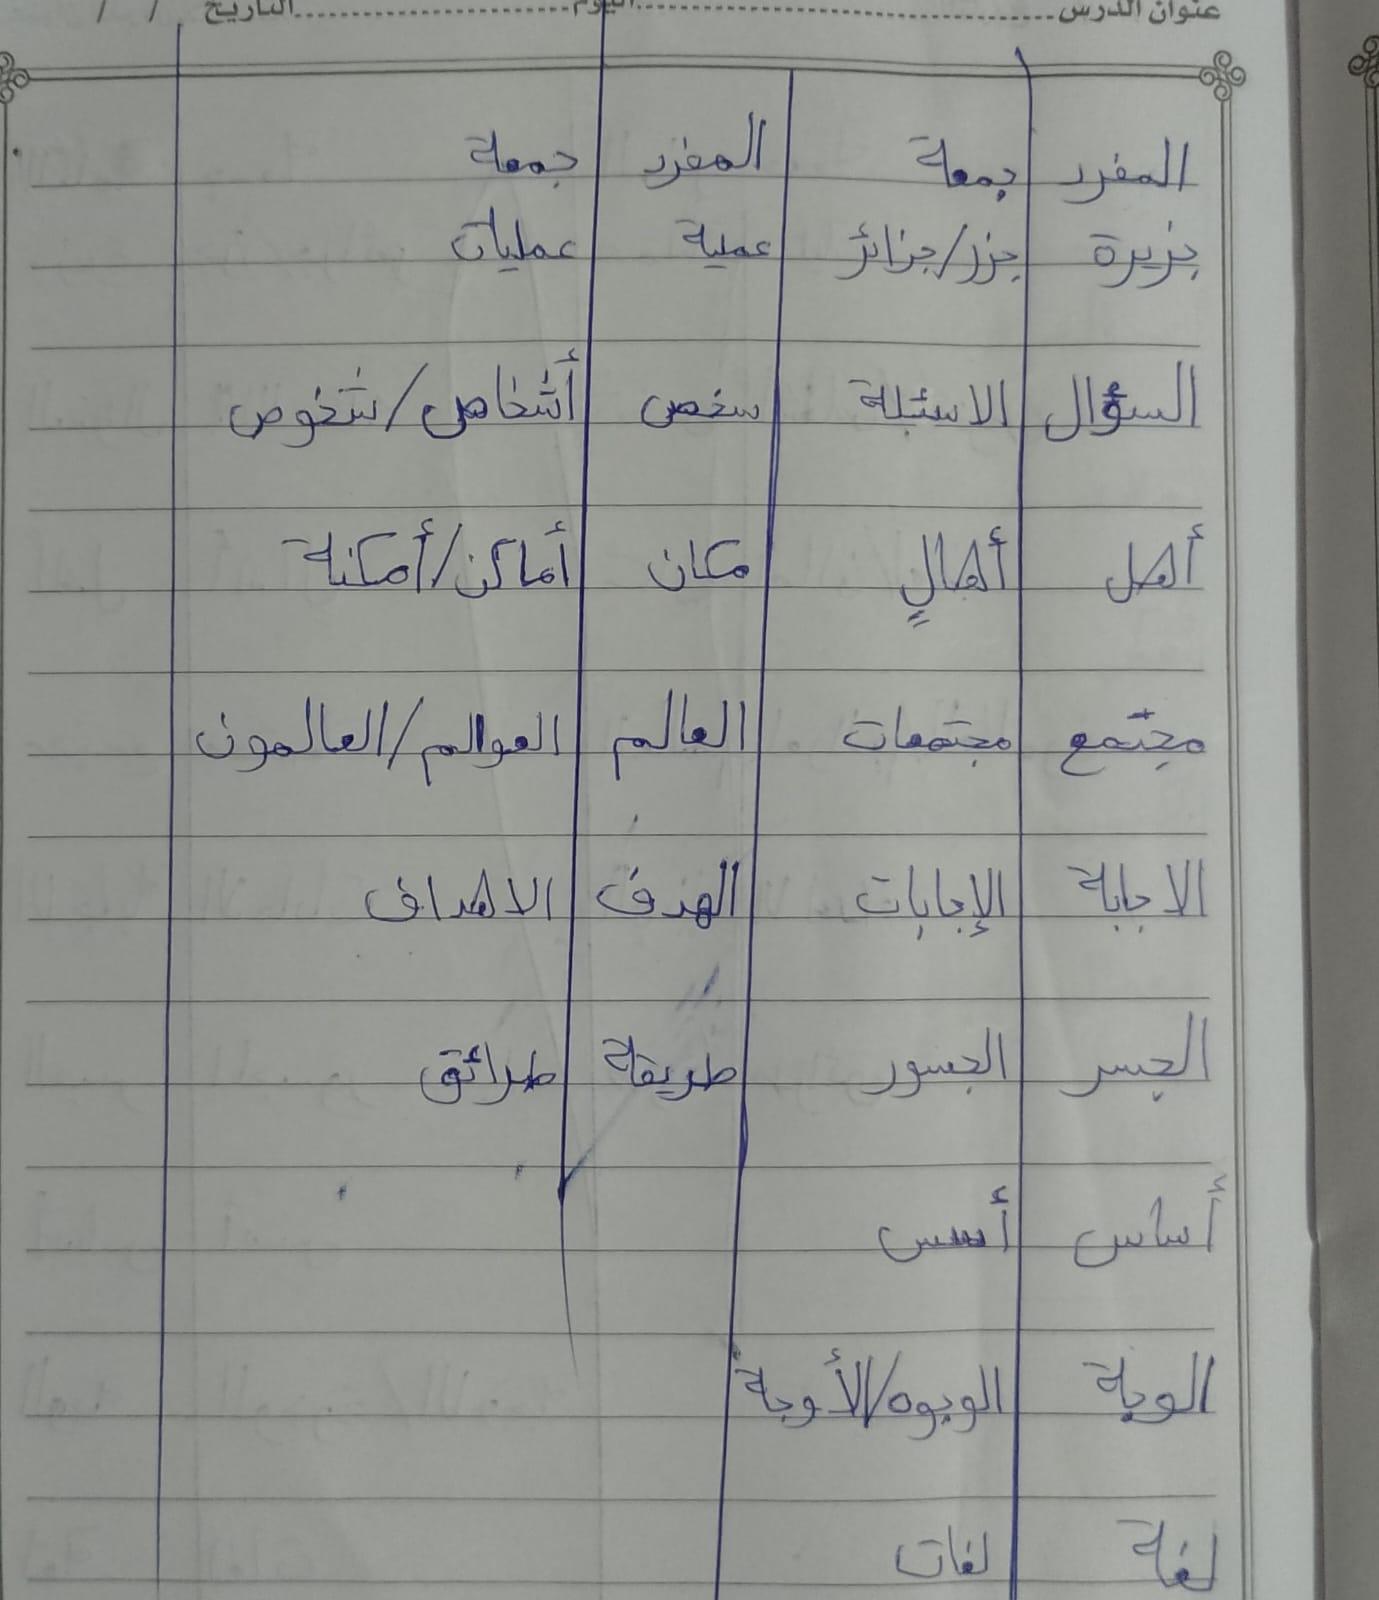 عنوان الدرس.......... اليوم.......... التاريخ / /
المفرد جمعة المفرد جمعة
جزيرة جزر/جزائر عملية عمليات
السؤال الاسئلة سخص أشخاص/شخوص
أهل أهالٍ مكان أماكن/أمكنة
مجتمع مجتمعات العالم العوالم/العالمون
الاجابة الإجابات الهدف الاهداف
الجسر الجسور طريقة طرائق
أساس أسس
الوجة الوجوه/الأوجة
لغة لغات